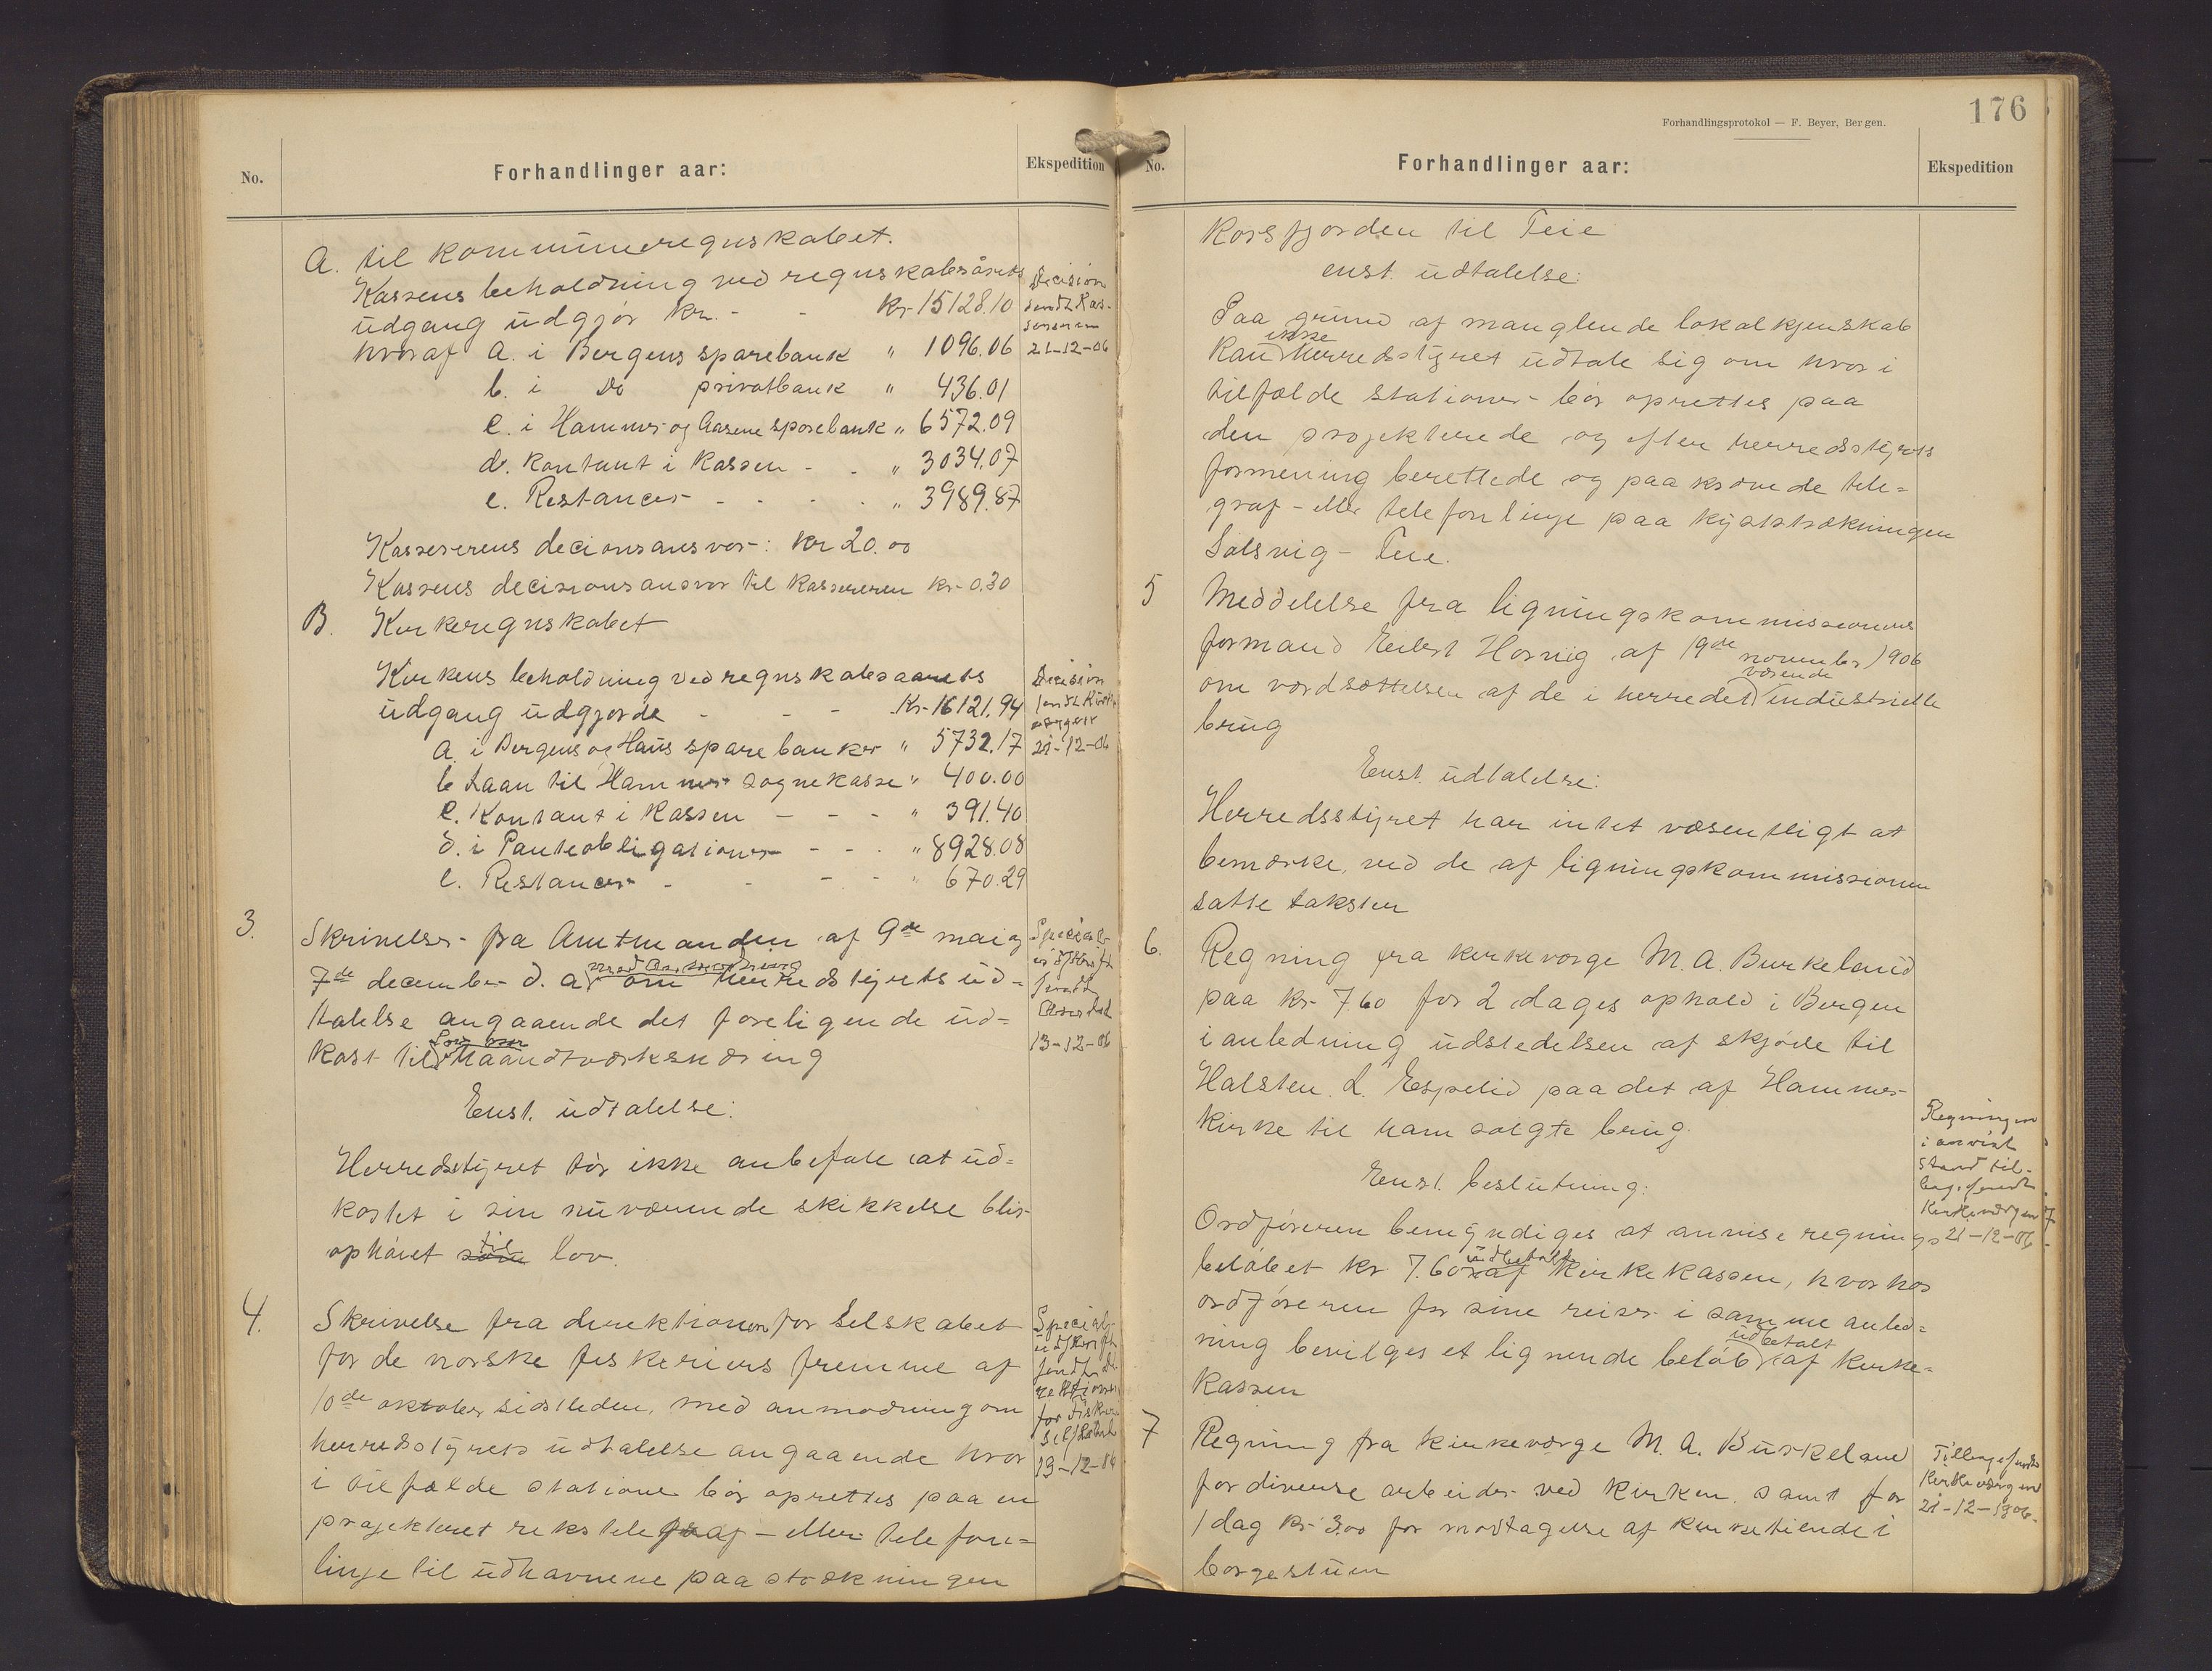 No.
Forhandlinger aar:
Ekspedition
A. til kommuneregnskabet.
Kassens beholdning ved regnskabsårets
udgang udgjør kr. - - kr. 15128.10
hvoraf a. i Bergens sparebank " 1096.06
b. i Do privatbank " 436.01
c. i Hammer og Aasene sparebank " 6572.09
d. Kontant i Kassen - - " 3034.07
e. Restancer - - - - " 3989.87
Decision
sendt Kas-
sereren
21-12-06
Kassererens decionsansvar: kr 20.00
Kassens decisionsansvar til kassereren kr. 0.30
B. Kirkeregnskabet
Kirkens beholdning ved regnskabsaarets
udgang udgjorde - - - Kr. 16121.94
a. i Bergens og Haus sparebanker " 5732.17
b Laan til Hammer sognekasse " 400.00
c. Kontant i Kassen - - - " 391.40
d. i Panteobligationer - - - " 8928.08
e. Restancer - - - - " 670.29
Decision
sendt Kirke-
værgen
21-12-06
3. Skrivelser fra Amtmanden af 9de mai og
7de december d. a. med anmodning om herredstyrets ud-
talelse angaaende det foreligende ud-
kast til Lov om Haandtværksnæring
Special-
udskrift
sendt
Amtet
13-12-06
Enst. udtalelse:
Herredsstyret tør ikke anbefale at ud-
kastet i sin nuværende skikkelse blir
ophøiet som til lov.
4. Skrivelse fra direktionen for Selskabet
for de norske fiskeriers fremme af
10de oktober sidstleden, med anmodning om
herredsstyrets udtalelse angaaende hvor
i tilfælde stationer bør oprettes paa en
projekteret rikstelegraf - eller telefon-
linje til udhavnene paa strækningen
Special-
udskrift
sendt Di-
rektionen
for Fiskeri
Selskabet
13-12-06
176
Forhandlingsprotokol — F. Beyer, Bergen.
No.
Forhandlinger aar:
Ekspedition
Korsfjorden til Teie
enst. udtalelse:
Paa grund af manglende lokalkjenskab
kan ikke herredsstyret udtale sig om hvor i
tilfælde stationer bør oprettes paa
den projekterede og efter herredsstyrets
formening berettede og paakrævede tele-
graf - eller telefonlinje paa kyststrækningen
Solsvig - Teie.
5 Meddelelse fra ligningskommissionens
formand Eilert Horvig af 19de november 1906
om værdsættelsen af de i herredet værende industrielle
brug
Enst. udtalelse:
Herredsstyret har intet væsentligt at
bemærke, ved de af ligningskommissionen
satte takster
6. Regning fra kirkeværge M. A. Burkeland
paa kr. 7.60 for 2 dages ophold i Bergen
i anledning udstedelsen af skjøde til
Halsten L. Espelid paa det af Hammer
kirke til ham solgte brug.
Enst. beslutning:
Ordføreren bemyndiges at anvise regnings
beløbet kr 7.60 udbetalt af kirkekassen, hvorhos
ordføreren for sine reiser i samme anled-
ning bevilges et lignende beløb udbetalt af kirke-
kassen
Regningen
i anvist
stand til-
bagesendt
Kirkeværgen
21-12-06
7 Regning fra kirkeværge M. A. Burkeland
for diverse arbeider ved kirken samt for
1 dag kr. 3.00 for modtagelse af kirketiende i
borgestuen
Tilbagesendt
Kirkeværgen
21-12-1906.